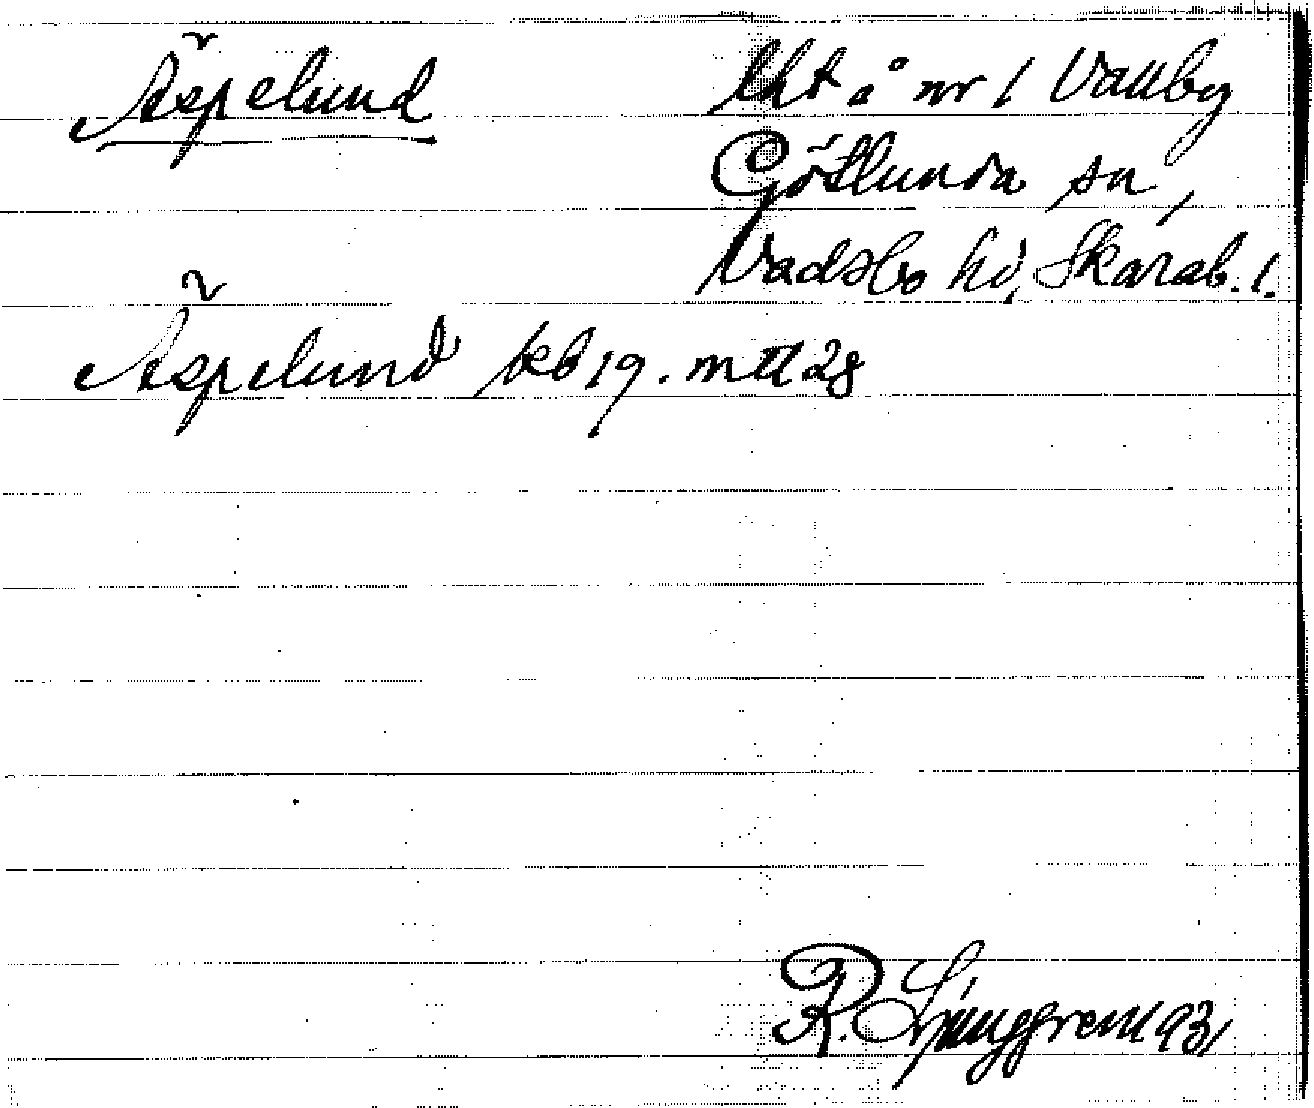 Äspelund
lht å nr 1 Vallby
Götlunda sn,
Vadsbo hd, Skarab. l.
Äspelund kb 19. mtl 28
R. Ljunggren 1931